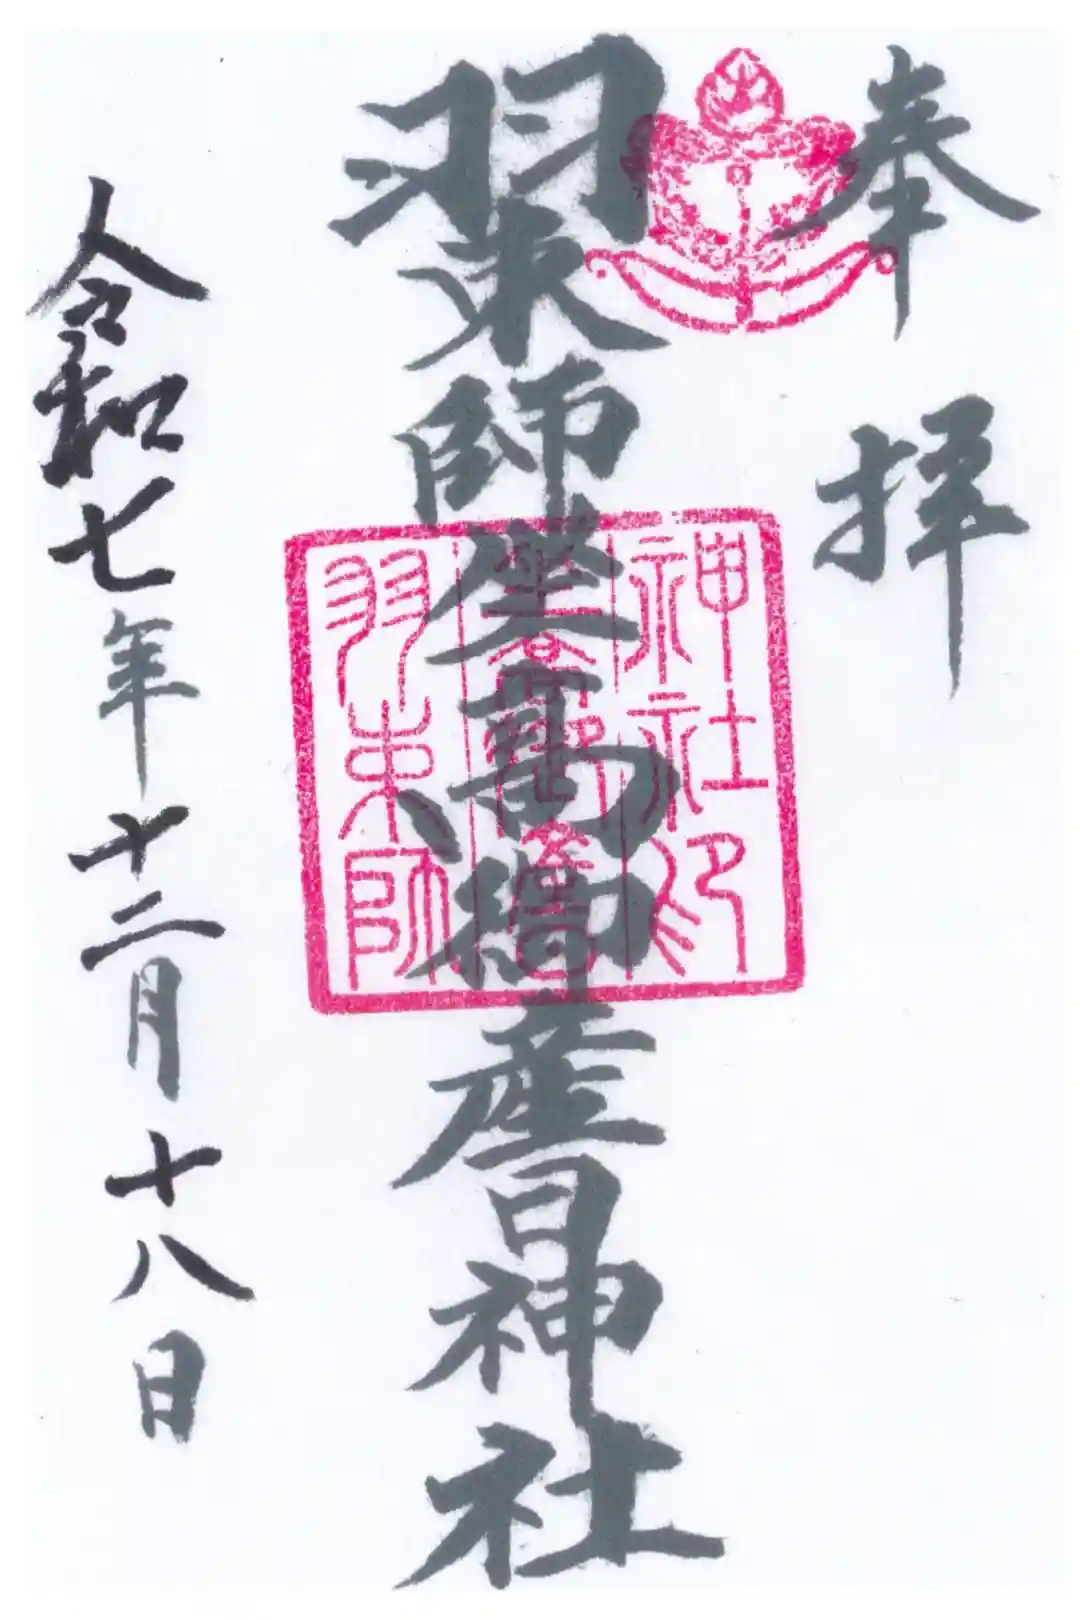 奉拝
羽束師坐高御産日神社
羽束師
神社印
令和七年十二月十八日